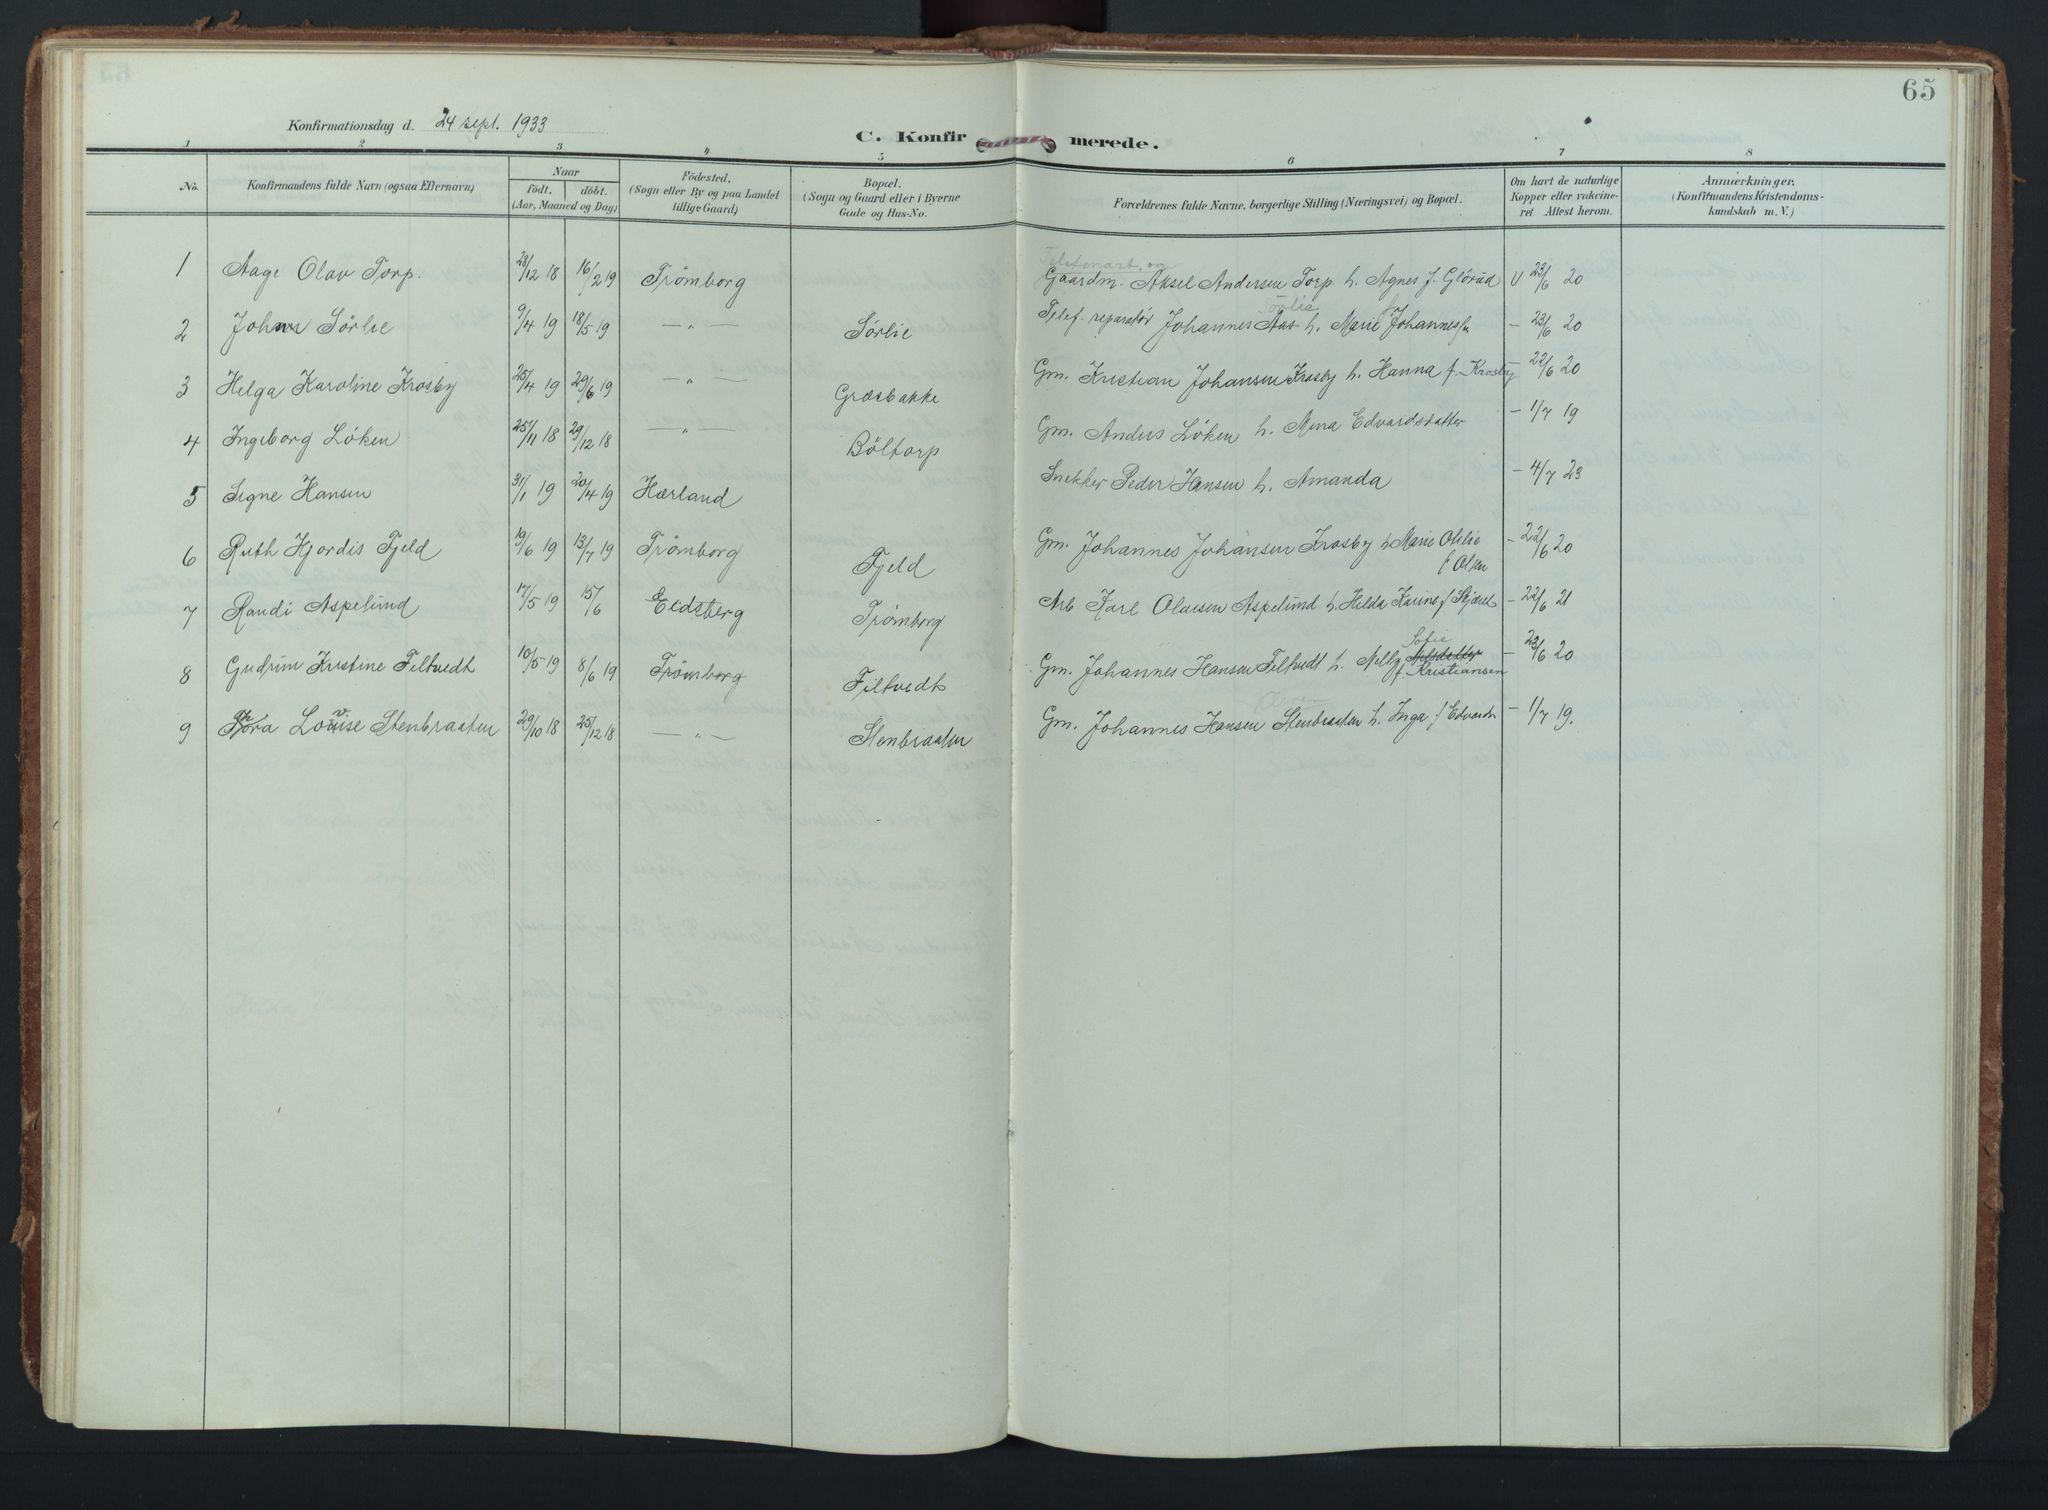 65
Konfirmationsdag d. 24 sept. 1933
C. Konfirmerede.
1 2 3 4 5 6 7 8
No. Konfirmandens fulde Navn (ogsaa Efternavn) Naar födt. döbt. (Aar, Maaned og Dag) Födested. (Sogn eller By og paa Landet tillige Gaard) Bopæl. (Sogn og Gaard eller i Byerne Gade og Hus-No. Forældrenes fulde Navne, borgerlige Stilling (Næringsvei) og Bopæl. Om havt de naturlige Kopper eller vakcineret. Attest herom. Anmærkninger. (Konfirmandens Kristendomskundskab m. V.)
1 Aage Olav Torp. 28/12 18 16/2 19 Trømborg Telefonarb. og Gaardm. Aksel Andersen Torp h. Agnes f. Glörud v 23/6 20
2 Johan Sörlie 9/4 19 18/5 19 — " — Sörlie Telef. reparatör Johannes Aas Sörlie h. Marie f. Johannes 23/6 20
3 Helga Karoline Krosby 25/4 19 29/6 19 — " — Græsbakke Gm. Kristian Johansen Krosby h. Hanna f. Krosby — 22/6 20
4 Ingeborg Löken 25/11 18 29/12 18 — " — Böltorp Gm. Anders Löken h. Mina Edvardsdatter — 1/7 19
5 Signe Hansen 31/1 19 20/4 19 Hærland Snekker Peder Hansen h. Amanda — 4/7 23
6 Ruth Hjördis Fjeld 19/6 19 13/7 19 Trømborg Fjeld Gm. Johannes Johansen Krosby h Marie Othilie f Olsen — 22/6 20
7 Randi Aspelund 17/5 19 15/6 Eidsberg Trømborg Arb Karl Olausen Aspelund h. Helda Karine f — 22/6 21
8 Gudrun Kristine Filtvedt 10/5 19 8/6 19 Trømborg Filtvedt Gm. Johannes Hansen Filtvedt h. Nelly Sofie Nilsdatter f Kristiansen — 23/6 20
9 Thora Lovise Stenbraaten 29/10 18 25/12 18 — " — Stenbraaten Gm. Johannes Hansen Stenbraaten h. Inga f Edvards — 1/7 19.